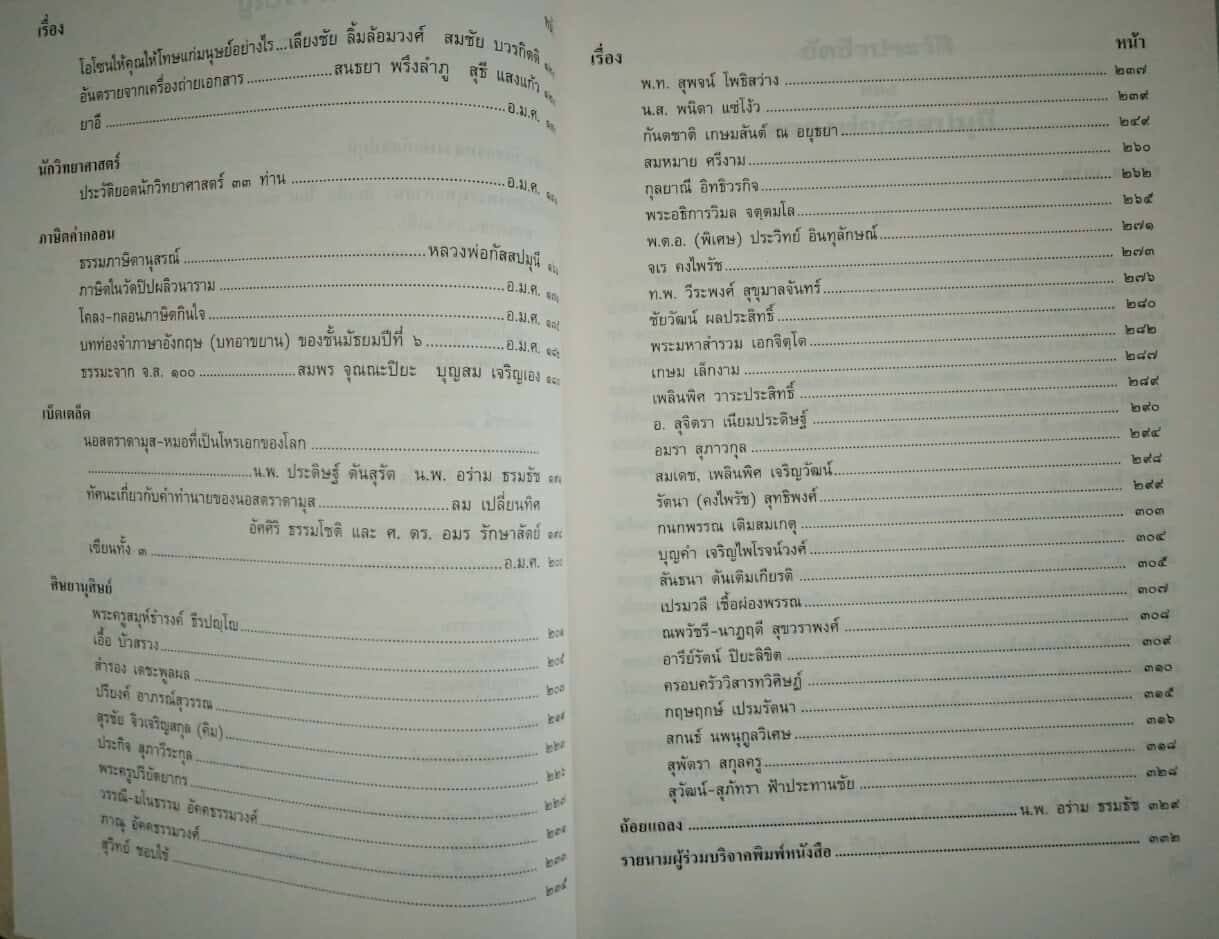 เรื่อง
โอโซนให้คุณให้โทษแก่มนุษย์อย่างไร...เลียงชัย ลิ้มล้อมวงศ์ สมชัย บวรกิตติ
อันตรายจากเครื่องถ่ายเอกสาร....................สนธยา พรึงลำภู สุธี แสงแก้ว
ยาอี....................อ.ม.ศ.
นักวิทยาศาสตร์
ประวัติยอดนักวิทยาศาสตร์ ๓๓ ท่าน....................อ.ม.ศ.
ภาษิตคำกลอน
ธรรมภาษิตานุสรณ์....................หลวงพ่อกัสสปมุนี
ภาษิตในวัดปิปผลิวนาราม....................อ.ม.ศ.
โคลง-กลอนภาษิตกินใจ....................อ.ม.ศ.
บทท่องจำภาษาอังกฤษ (บทอาขยาน) ของชั้นมัธยมปีที่ ๖....................อ.ม.ศ.
ธรรมะจาก จ.ส. ๑๐๐....................สมพร จุณณะปิยะ บุญสม เจริญเอง
เบ็ดเตล็ด
นอสตราดามุส-หมอที่เป็นโหรเอกของโลก....................
....................น.พ. ประดิษฐ์ ตันสุรัต น.พ. อร่าม ธรมธัช
ทัศนะเกี่ยวกับคำทำนายของนอสตราดามุส....................ลม เปลี่ยนทิศ
อัคศิริ ธรรมโชติ และ ศ. ดร. อมร รักษาสัตย์
เซียนทั้ง ๓....................อ.ม.ศ.
ศิษยานุศิษย์
พระครูสมุห์ธำรงค์ ธีรปญฺโญ....................
เอื้อ บัวสรวง....................
สำรอง เดชะพูลผล....................
ปรียงค์ อาภรณ์สุวรรณ....................
สุรชัย จิวเจริญสกุล (คิม)....................
ประกิจ สุภาวีระกุล....................
พระครูปริยัตยากร....................
วรรณี-มโนธรรม อัคคธรรมวงศ์....................
ภาณุ อัคคธรรมวงศ์....................
สุวิทย์ ชอบใช้....................
เรื่อง หน้า
พ.ท. สุพจน์ โพธิสว่าง....................๒๓๗
น.ส. พนิดา แซ่โง้ว....................๒๓๙
กันตชาติ เกษมสันต์ ณ อยุธยา....................๒๔๙
สมหมาย ศรีงาม....................๒๖๐
กุลยาณี อิทธิวรกิจ....................๒๖๒
พระอธิการวิมล จตฺตมโล....................๒๖๕
พ.ต.อ. (พิเศษ) ประวิทย์ อินทุลักษณ์....................๒๗๑
จเร คงไพรัช....................๒๗๓
ท.พ. วีระพงศ์ สุขุมาลจันทร์....................๒๗๖
ชัยวัฒน์ ผลประสิทธิ์....................๒๘๐
พระมหาสำรวม เอกจิตฺโต....................๒๘๒
เกษม เล็กงาม....................๒๘๗
เพลินพิศ วาระประสิทธิ์....................๒๘๙
อ. สุจิตรา เนียมประดิษฐ์....................๒๙๐
อมรา สุภาวกุล....................๒๙๔
สมเดช, เพลินพิศ เจริญวัฒน์....................๒๙๘
รัตนา (คงไพรัช) สุทธิพงศ์....................๒๙๙
กนกพรรณ เติมสมเกตุ....................๓๐๓
บุญคำ เจริญไพโรจน์วงศ์....................๓๐๔
สันธนา ตันเติมเกียรติ....................๓๐๕
เปรมวลี เชื้อผ่องพรรณ....................๓๐๗
ณพวัชรี-นาฏฤดี สุขวราพงศ์....................๓๐๘
อารีย์รัตน์ ปิยะลิขิต....................๓๐๙
ครอบครัววิสารทวิศิษฎ์....................๓๑๐
กฤษฤกษ์ เปรมรัตนา....................๓๑๕
สกนธ์ นพนุกูลวิเศษ....................๓๑๖
สุพัตรา สกุลครู....................๓๑๘
สุวัฒน์-สุภัทรา ฟ้าประทานชัย....................๓๒๘
ถ้อยแถลง....................น.พ. อร่าม ธรมธัช ๓๒๙
รายนามผู้ร่วมบริจาคพิมพ์หนังสือ....................๓๓๒